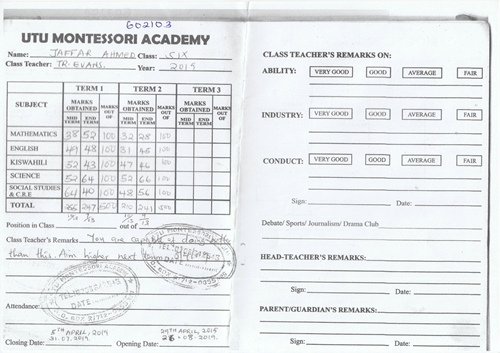 602103
UTU MONTESSORI ACADEMY
Name: JAFFAR AHMED Class: SIX
Class Teacher: TR. EVANS. Year: 2019
TERM 1 TERM 2 TERM 3
SUBJECT MARKS OBTAINED MARKS OUT OF MARKS OBTAINED MARKS OUT OF MARKS OBTAINED MARKS OUT OF
MID TERM END TERM MID TERM END TERM MID TERM END TERM
MATHEMATICS 38 52 100 32 28 100
ENGLISH 49 48 100 31 45 100
KISWAHILI 52 43 100 47 46 100
SCIENCE 52 64 100 52 66 100
SOCIAL STUDIES & C.R.E 64 40 100 48 56 100
TOTAL 247 500 241
Position in Class out of
Class Teacher's Remarks You are capable of doing better
than this. Aim higher next term
UTU MONTESSORI ACADEMY
DATE
Attendance:
5TH APRIL, 2019 29TH APRIL, 2019
Closing Date: 31.07.2019. Opening Date: 26.08.2019.
CLASS TEACHER'S REMARKS ON:
ABILITY: VERY GOOD GOOD AVERAGE FAIR
INDUSTRY: VERY GOOD GOOD AVERAGE FAIR
CONDUCT: VERY GOOD GOOD AVERAGE FAIR
Sign: Date:
Debate/ Sports/ Journalism/ Drama Club
HEAD-TEACHER'S REMARKS:
Sign: Date:
PARENT/GUARDIAN'S REMARKS:
Sign: Date: